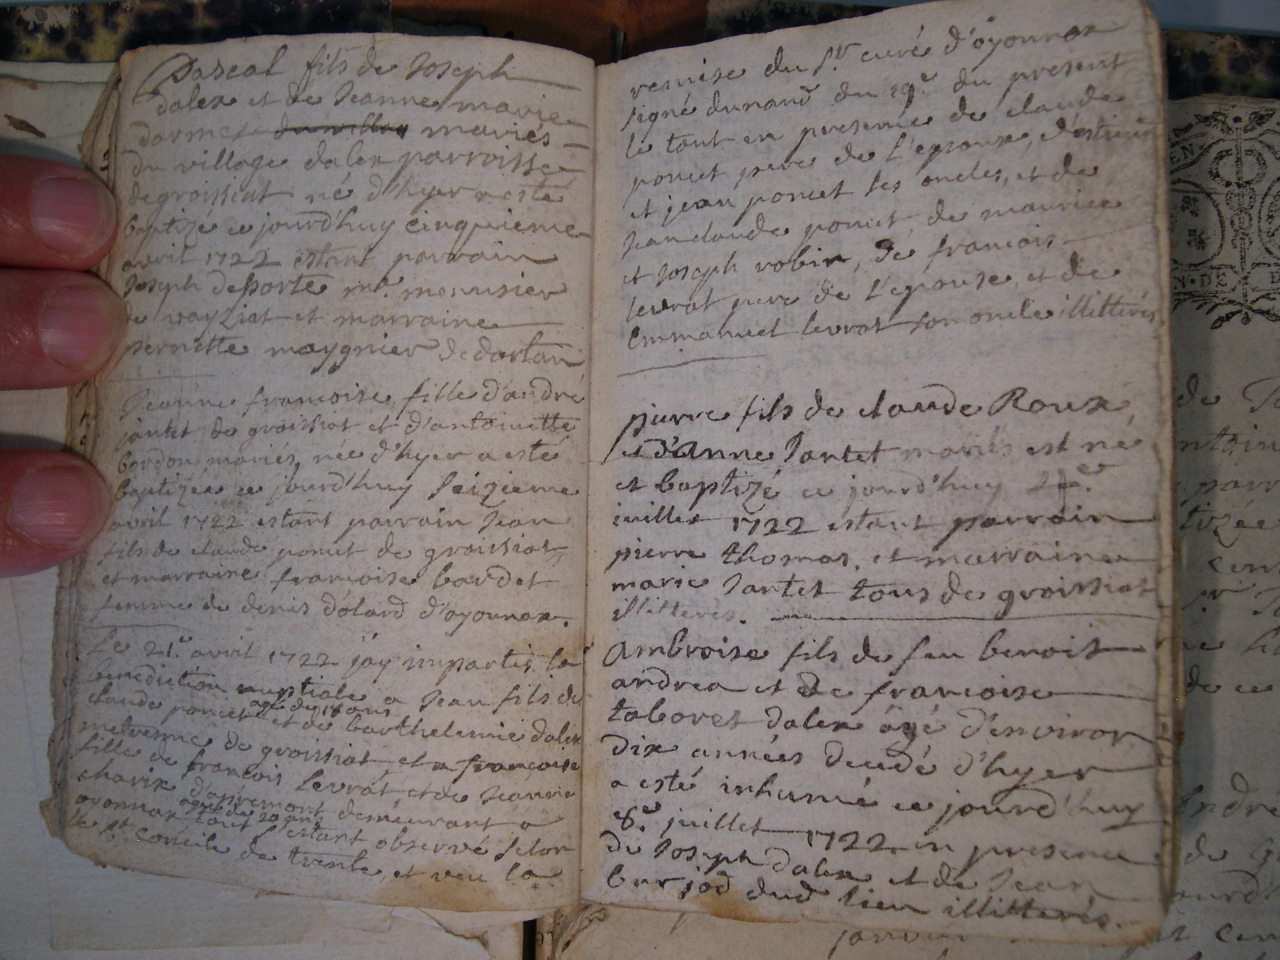 Pascal fils de Joseph
dalex et de Jeanne marie
mariés
du village dalex parroisse
de groissiat né d'hyer a esté
baptizé ce jourd'huy cinquieme
avril 1722 estant parrain
Joseph deporte me. menusier
de vayziat et marraine
pernette moygnier de dortan
Jeanne francoise fille d'andré
jantet de groissiat et d'antoinette
bordon mariés, née d'hyer a esté
baptizée ce jourd'huy seizieme
avril 1722 estant parrain Jean
fils de claude poncet de groissiat
et marraine francoise bardet
femme de denis dolard d'oyonnax.
Le 21e. avril 1722 j'ay imparti la
benediction nuptiale a Jean fils de
claude poncet agé de 18 ans et de barthelemie dalex
de groissiat et a francoise
fille de francois levrat et de Jeanne
charix d'apremont demeurant a
oyonnax estant observé selon
le St. Concile de trente et veu la
remise du Sr. curé d'oyonnax
signé dunand du 19e. du present
le tout en presence de claude
poncet pere de l'epoux, d'estienne
et jean poncet ses oncles, et de
Jean claude poncet, de maurice
et Joseph robin, de francois
levrat pere de l'epouse, et de
Emmanuel levrat son oncle illitterés
pierre fils de claude Roux
et d'Anne Jantet mariés est né
et baptizé ce jourd'huy
juillet 1722 estant parrain
pierre thomas, et marraine
marie Jantet tous de groissiat
illitterés.
Ambroise fils de feu benoit
andrea et de francoise
taboret dalex agé d'environ
dix années decedé d'hyer
a esté inhumé ce jourd'huy
8e. juillet 1722 en presence
de Joseph dalex et de Jean
burjod dud lieu illitterés.